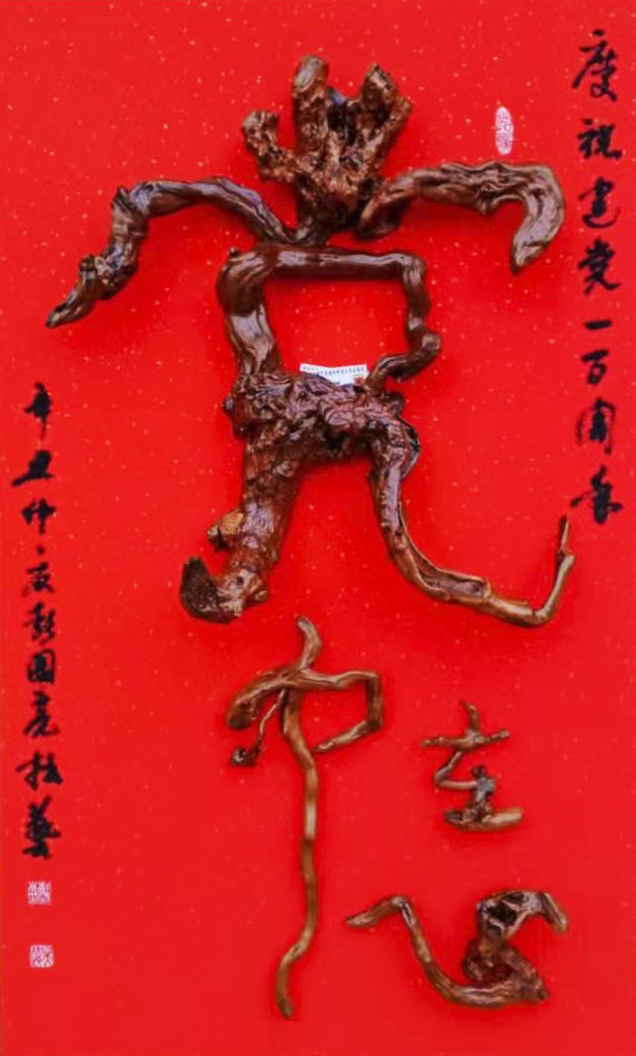 慶祝建党一百周年
党
在心
中
辛丑仲夏彭國亮根藝